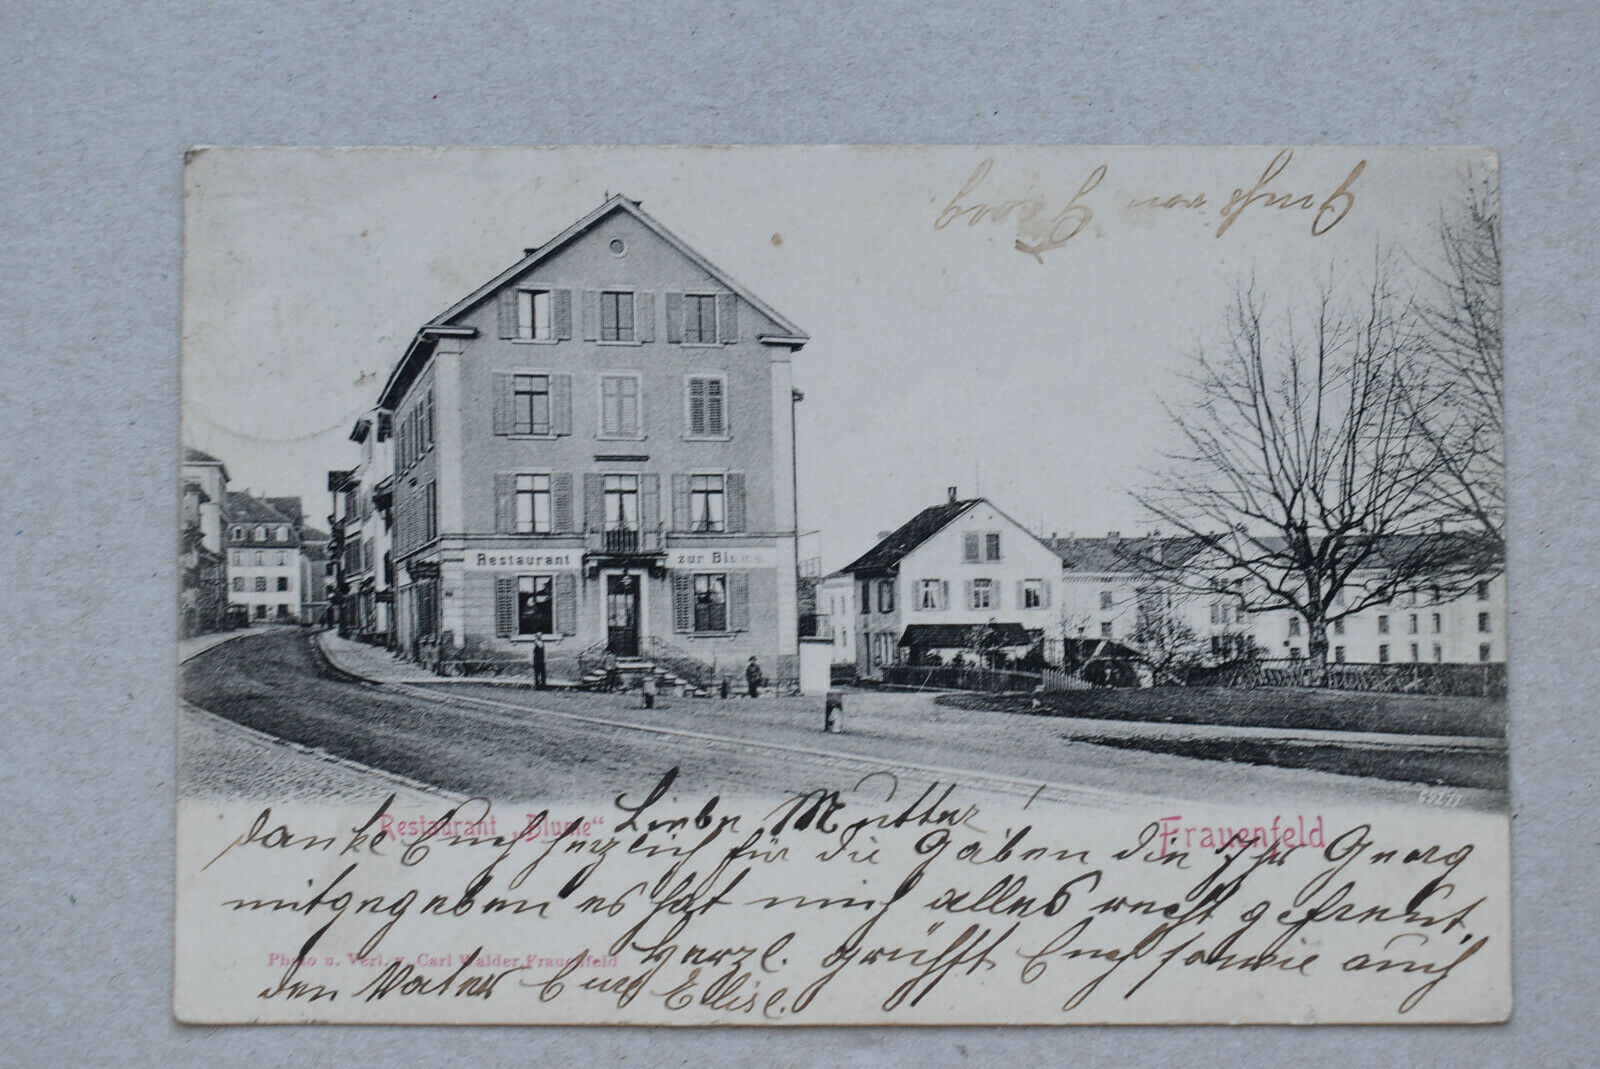 Gruß von Georg
Restaurant zur Blume
65277
Restaurant „Blume“
Frauenfeld
Liebe Mutter!
danke Euch herzlich für die Gaben die Ihr Georg
mitgegeben es hat mich alles recht gefreut.
Herzl. grüßt Euch sowie auch
den Vater Eure Elise.
Photo u. Verl. v. Carl Walder, Frauenfeld